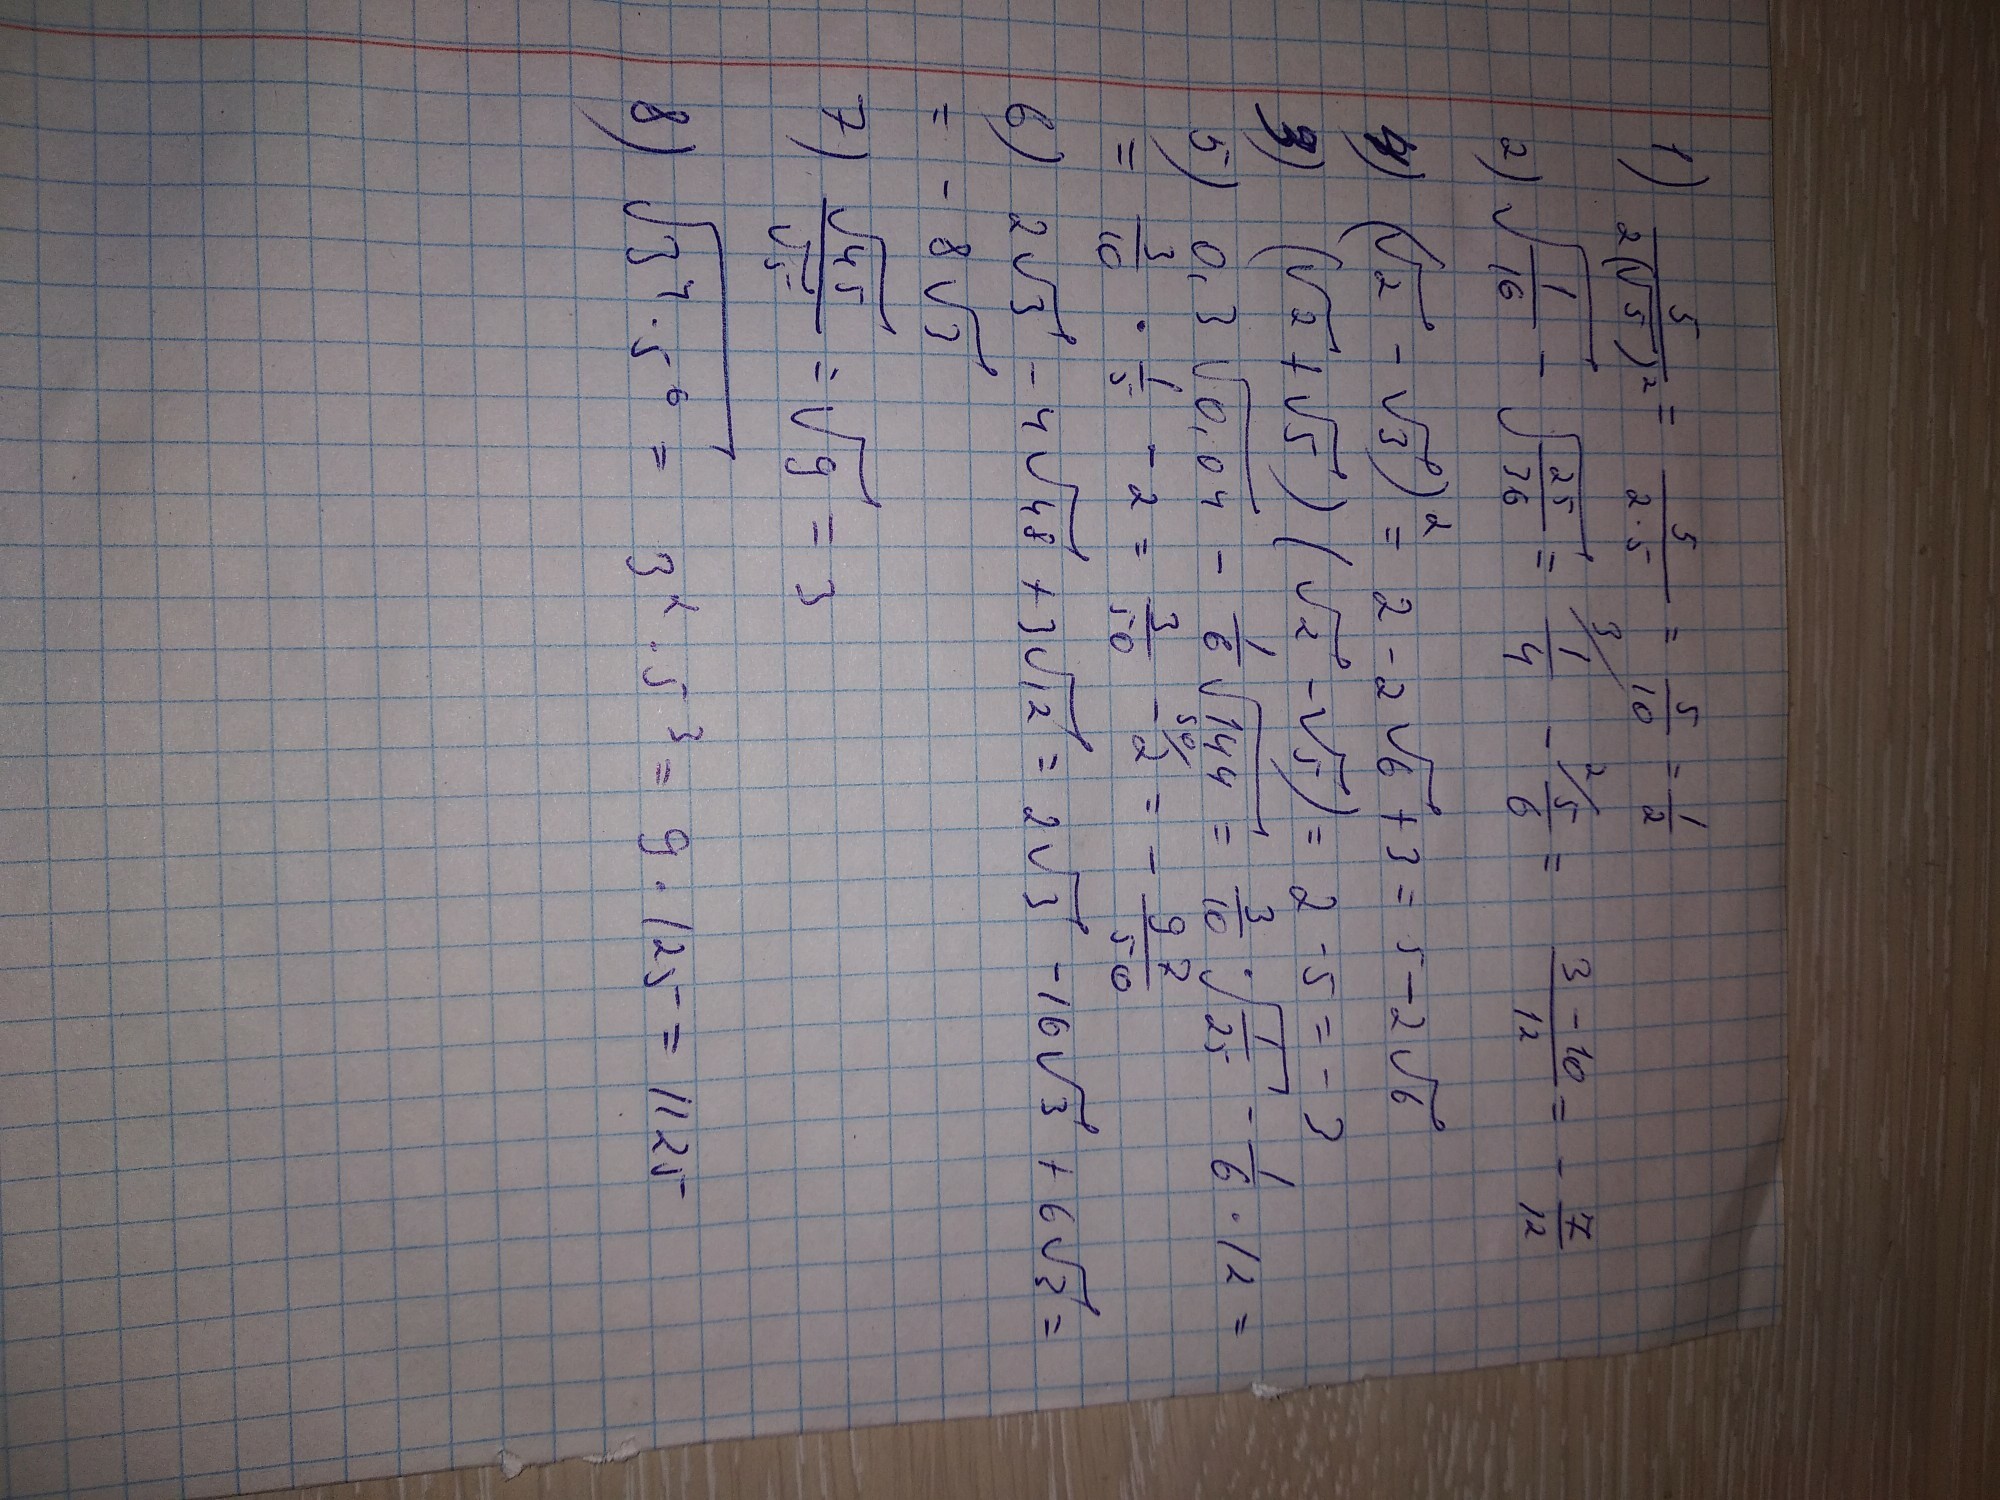 1) 5/(2(√5)²) = 5/(2·5) = 5/10 = 1/2
2) √(1/16) − √(25/36) = ³⁄ 1/4 − ²⁄ 5/6 = (3−10)/12 = − 7/12
4) (√2 − √3)² = 2 − 2√6 + 3 = 5 − 2√6
3) (√2 + √5)(√2 − √5) = 2 − 5 = −3
5) 0,3√0,04 − 1/6 √144 = 3/10 · √(1/25) − 1/6 · 12 =
= 3/10 · 1/5 − 2 = 3/50 − ⁵⁰⁄ 2 = − 97/50
6) 2√3 − 4√48 + 3√12 = 2√3 − 16√3 + 6√3 =
= − 8√3
7) √45/√5 = √9 = 3
8) √(3⁴ · 5⁶) = 3² · 5³ = 9 · 125 = 1125